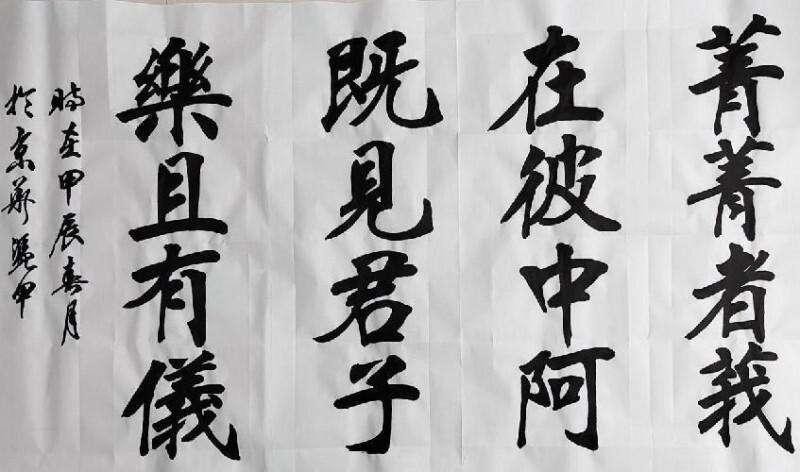 菁菁者莪
在彼中阿
既見君子
樂且有儀
時在甲辰春月
於京華逸甲